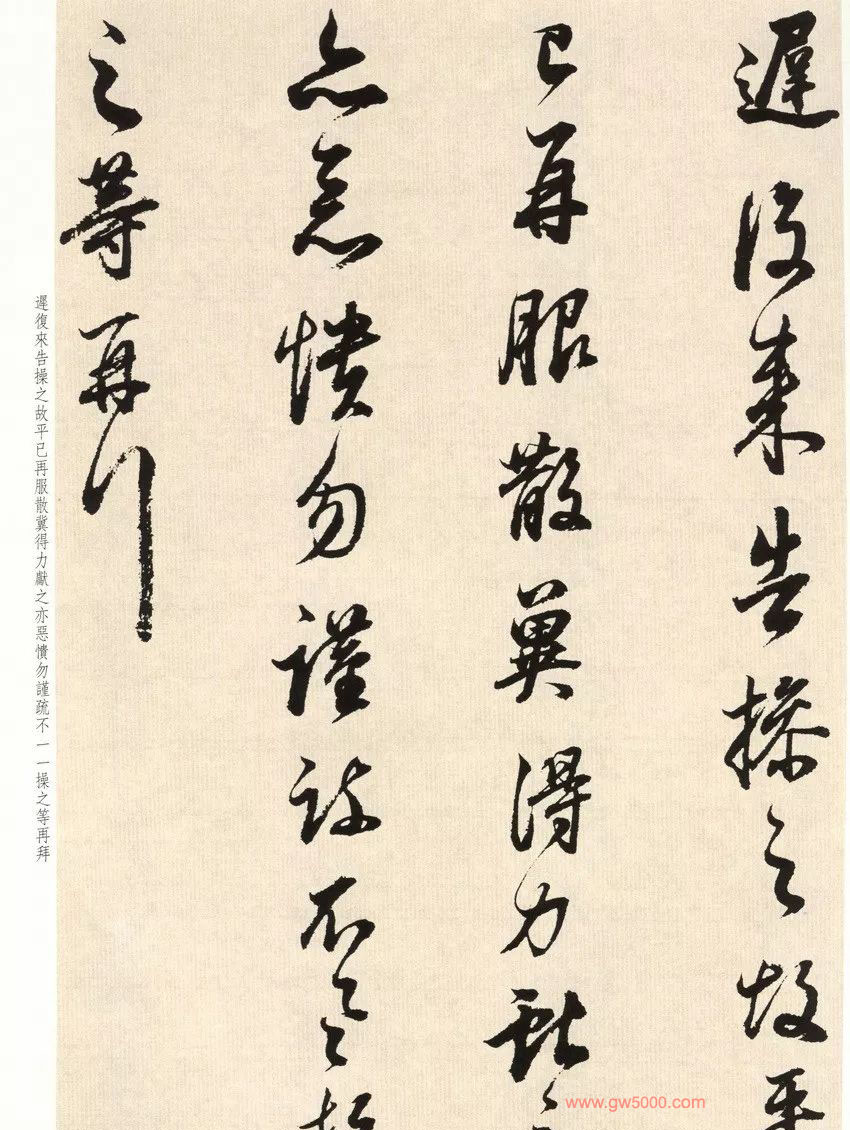 遲復來告操之故平
已再服散冀得力獻之
亦惡憒勿謹疏不一一操
之等再拜
遲復來告操之故平已再服散冀得力獻之亦惡憒勿謹疏不一一操之等再拜
www.gw5000.com